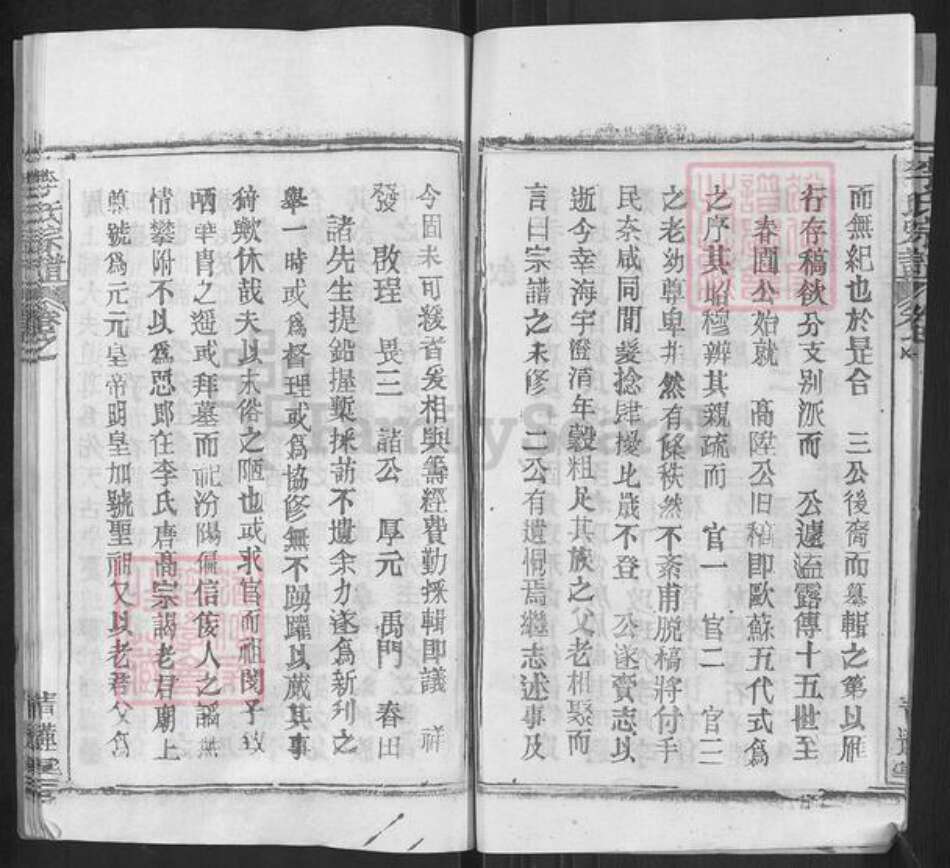 而無紀也於是合　三公後裔而纂輯之第以雁
行存稿欲分支別派而　公遽溘露傳十五世至
春圃公始就　高陞公旧稿即歐蘇五代式爲
之序其昭穆辨其親疏而　官一　官二　官三
之老幼尊卑井然有條秩然不紊甫脫稿將付手
民奈咸同間髮捻肆擾比歲不登　公遂賫志以
逝今幸海宇澄清年穀粗足其族之父老相聚而
言曰宗譜之未修二公有遺恫焉繼志述事及
今固未可緩者爰相與籌經費勤採輯即議　祥
發　啟理　畏三　諸公　厚元　禹門　春田
諸先生提鉛握槧採訪不遺余力遂爲新刋之
舉一時或爲督理或爲協修無不踴躍以蕆其事
猗歟休哉夫以末俗之陋也或求官而祖閔子致
哂華胄之遥或拜墓而祀汾陽偏信倿人之謟無
情攀附不以爲愆郎在李氏唐高宗謁老君廟上
尊號爲元元皇帝明皇加號聖祖又以老君父爲
李氏宗譜
卷之
李氏宗譜
FamilySearch